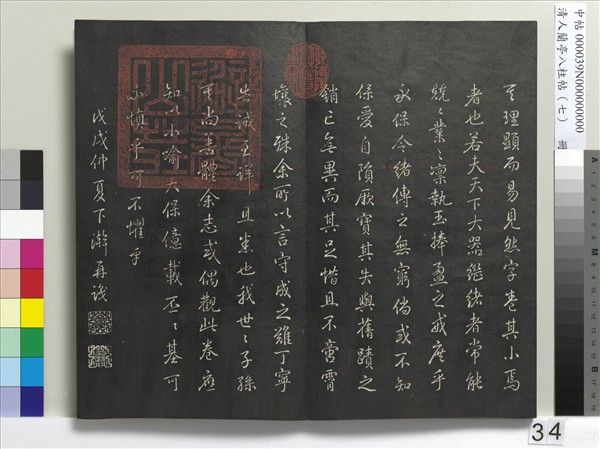 至理顯而易見然字卷其小焉
者也若夫天下大器繼緒者常能
兢兢業業凜執玉捧盈之戒庶乎
永保令緒傳之無窮倘或不知
保愛自隕厥寶其失與舊蹟之
銷亡無異而其足惜且不啻霄
壤之殊余所以言守成之難丁寧
告誡至詳且悉也我世世子孫
可尚善體余志或偶觀此卷應
知以小喻大保億載丕丕基可
不慎乎可不懼乎
戊戌仲夏下澣再識
中帖 000039N000000000
清人蘭亭八柱帖（七） 冊
34